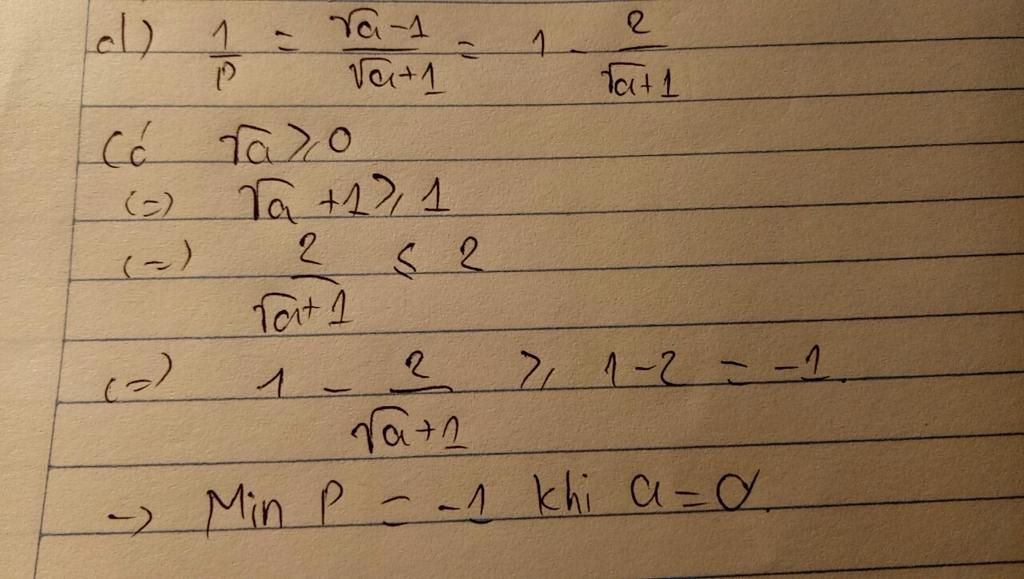 d) 1/P = (√a-1)/(√a+1) = 1 - 2/(√a+1)
Có √a ≥ 0
(=) √a +1 ≥ 1
(=) 2/(√a+1) ≤ 2
(=) 1 - 2/(√a+1) ≥ 1-2 = -1.
-> Min P = -1 khi a=0.